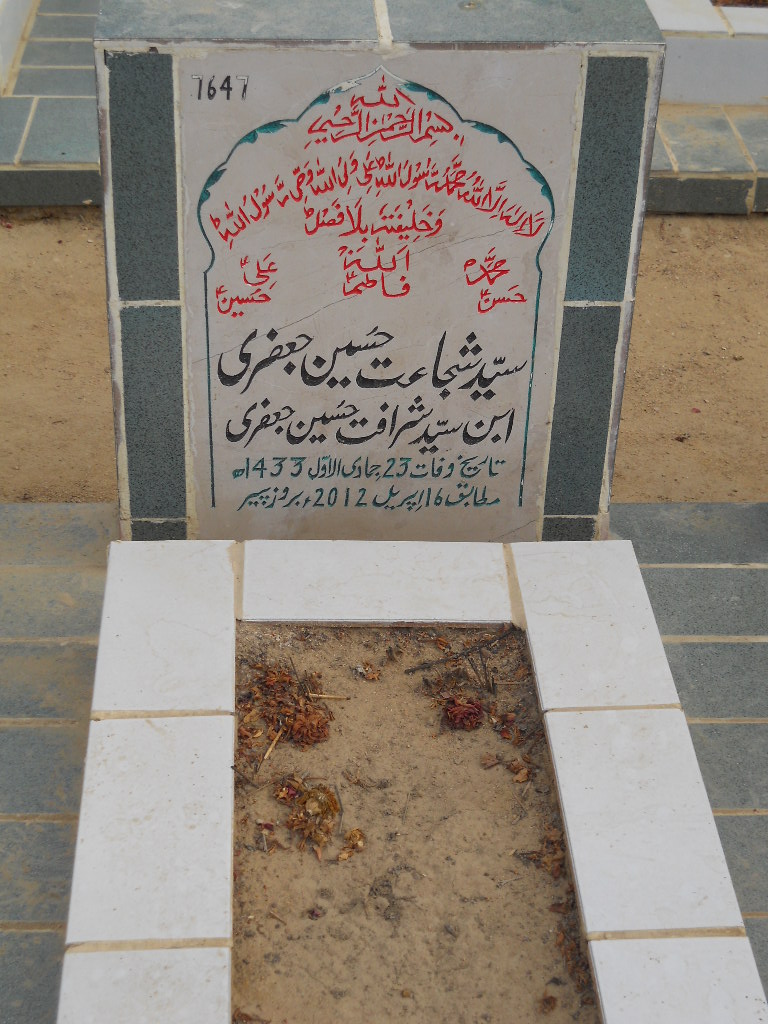 7647
بسم اللہ الرحمن الرحیم
لا الہ الا اللہ محمد رسول اللہ علی ولی اللہ وصی رسول اللہ
وخلیفتہ بلا فصل
محمدؐ اللہ علیؑ
حسنؑ فاطمہؑ حسینؑ
سیّد شجاعت حسین جعفری
ابن سیّد شرافت حسین جعفری
تاریخ وفات 23 جمادی الاوّل 1433ھ
مطابق 16 اپریل 2012ء بروز پیر